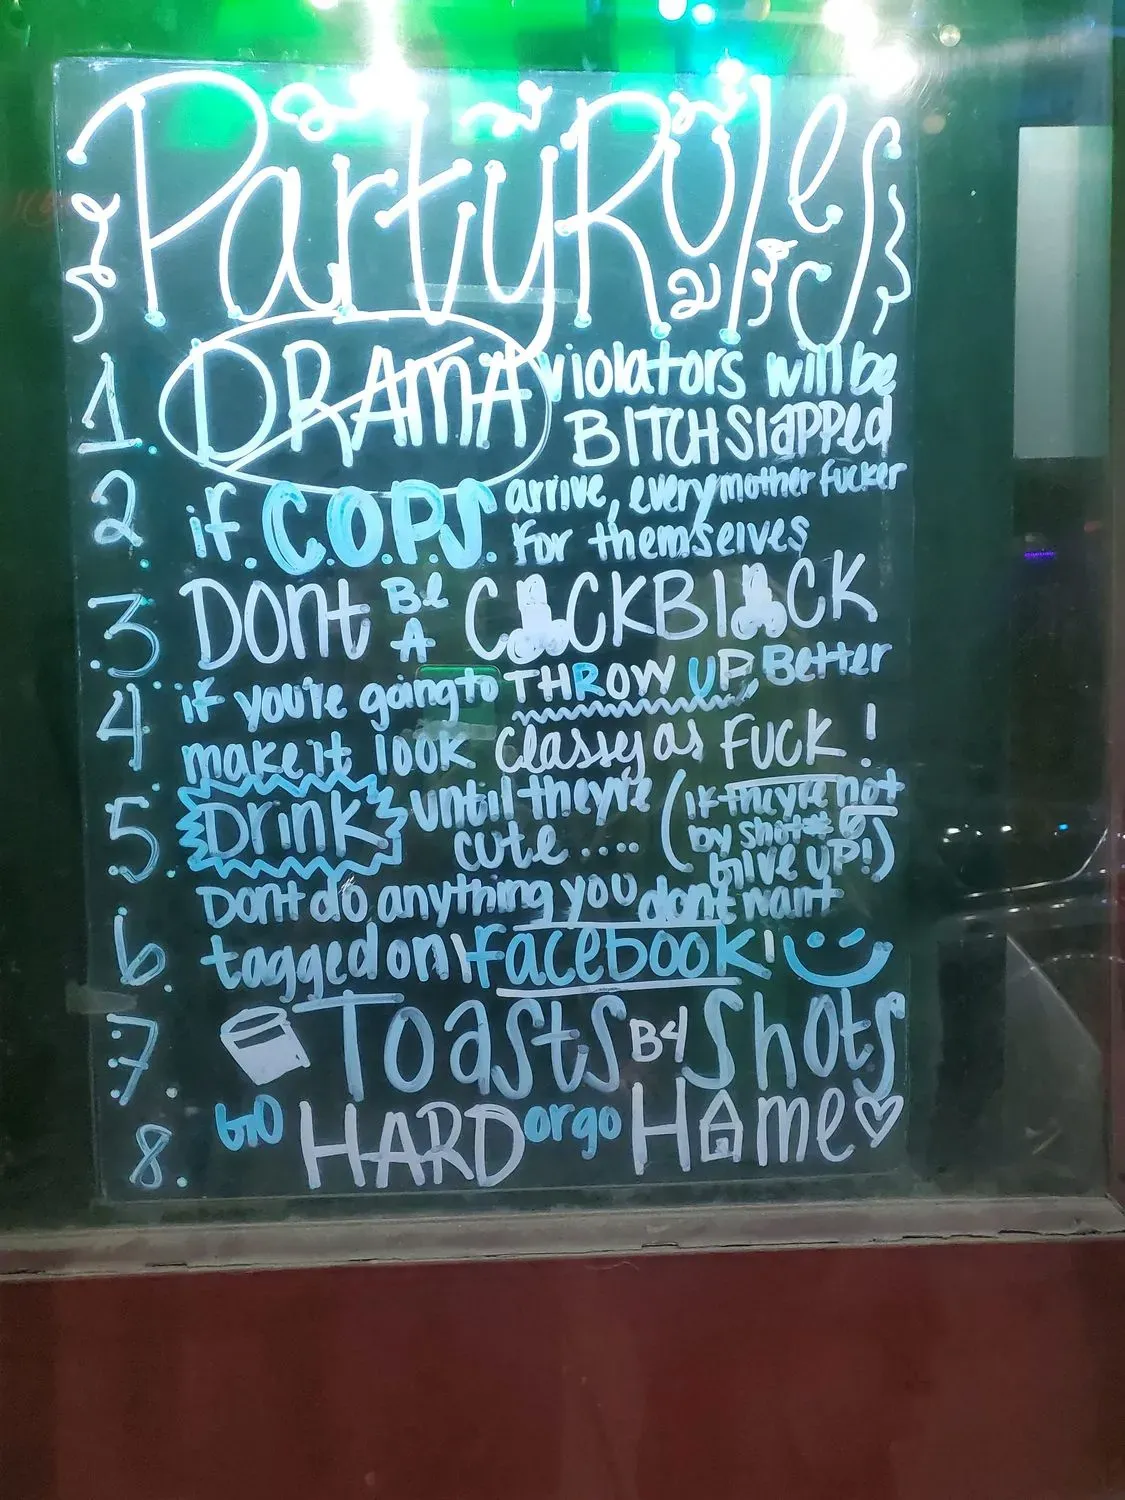 Party Rules
1. DRAMA violators will be
BITCH slapped
2. if C.O.P.S. arrive, every mother fucker
for themselves
3. Dont BE A COCKBLOCK
4. if you're going to THROW UP, Better
make it look classy as FUCK!
5. Drink until they're (if they're not
cute .... by shot# 
Give UP!)
6. Dont do anything you dont want
tagged on facebook!
7. Toasts B4 Shots
8. GO HARD or go Home